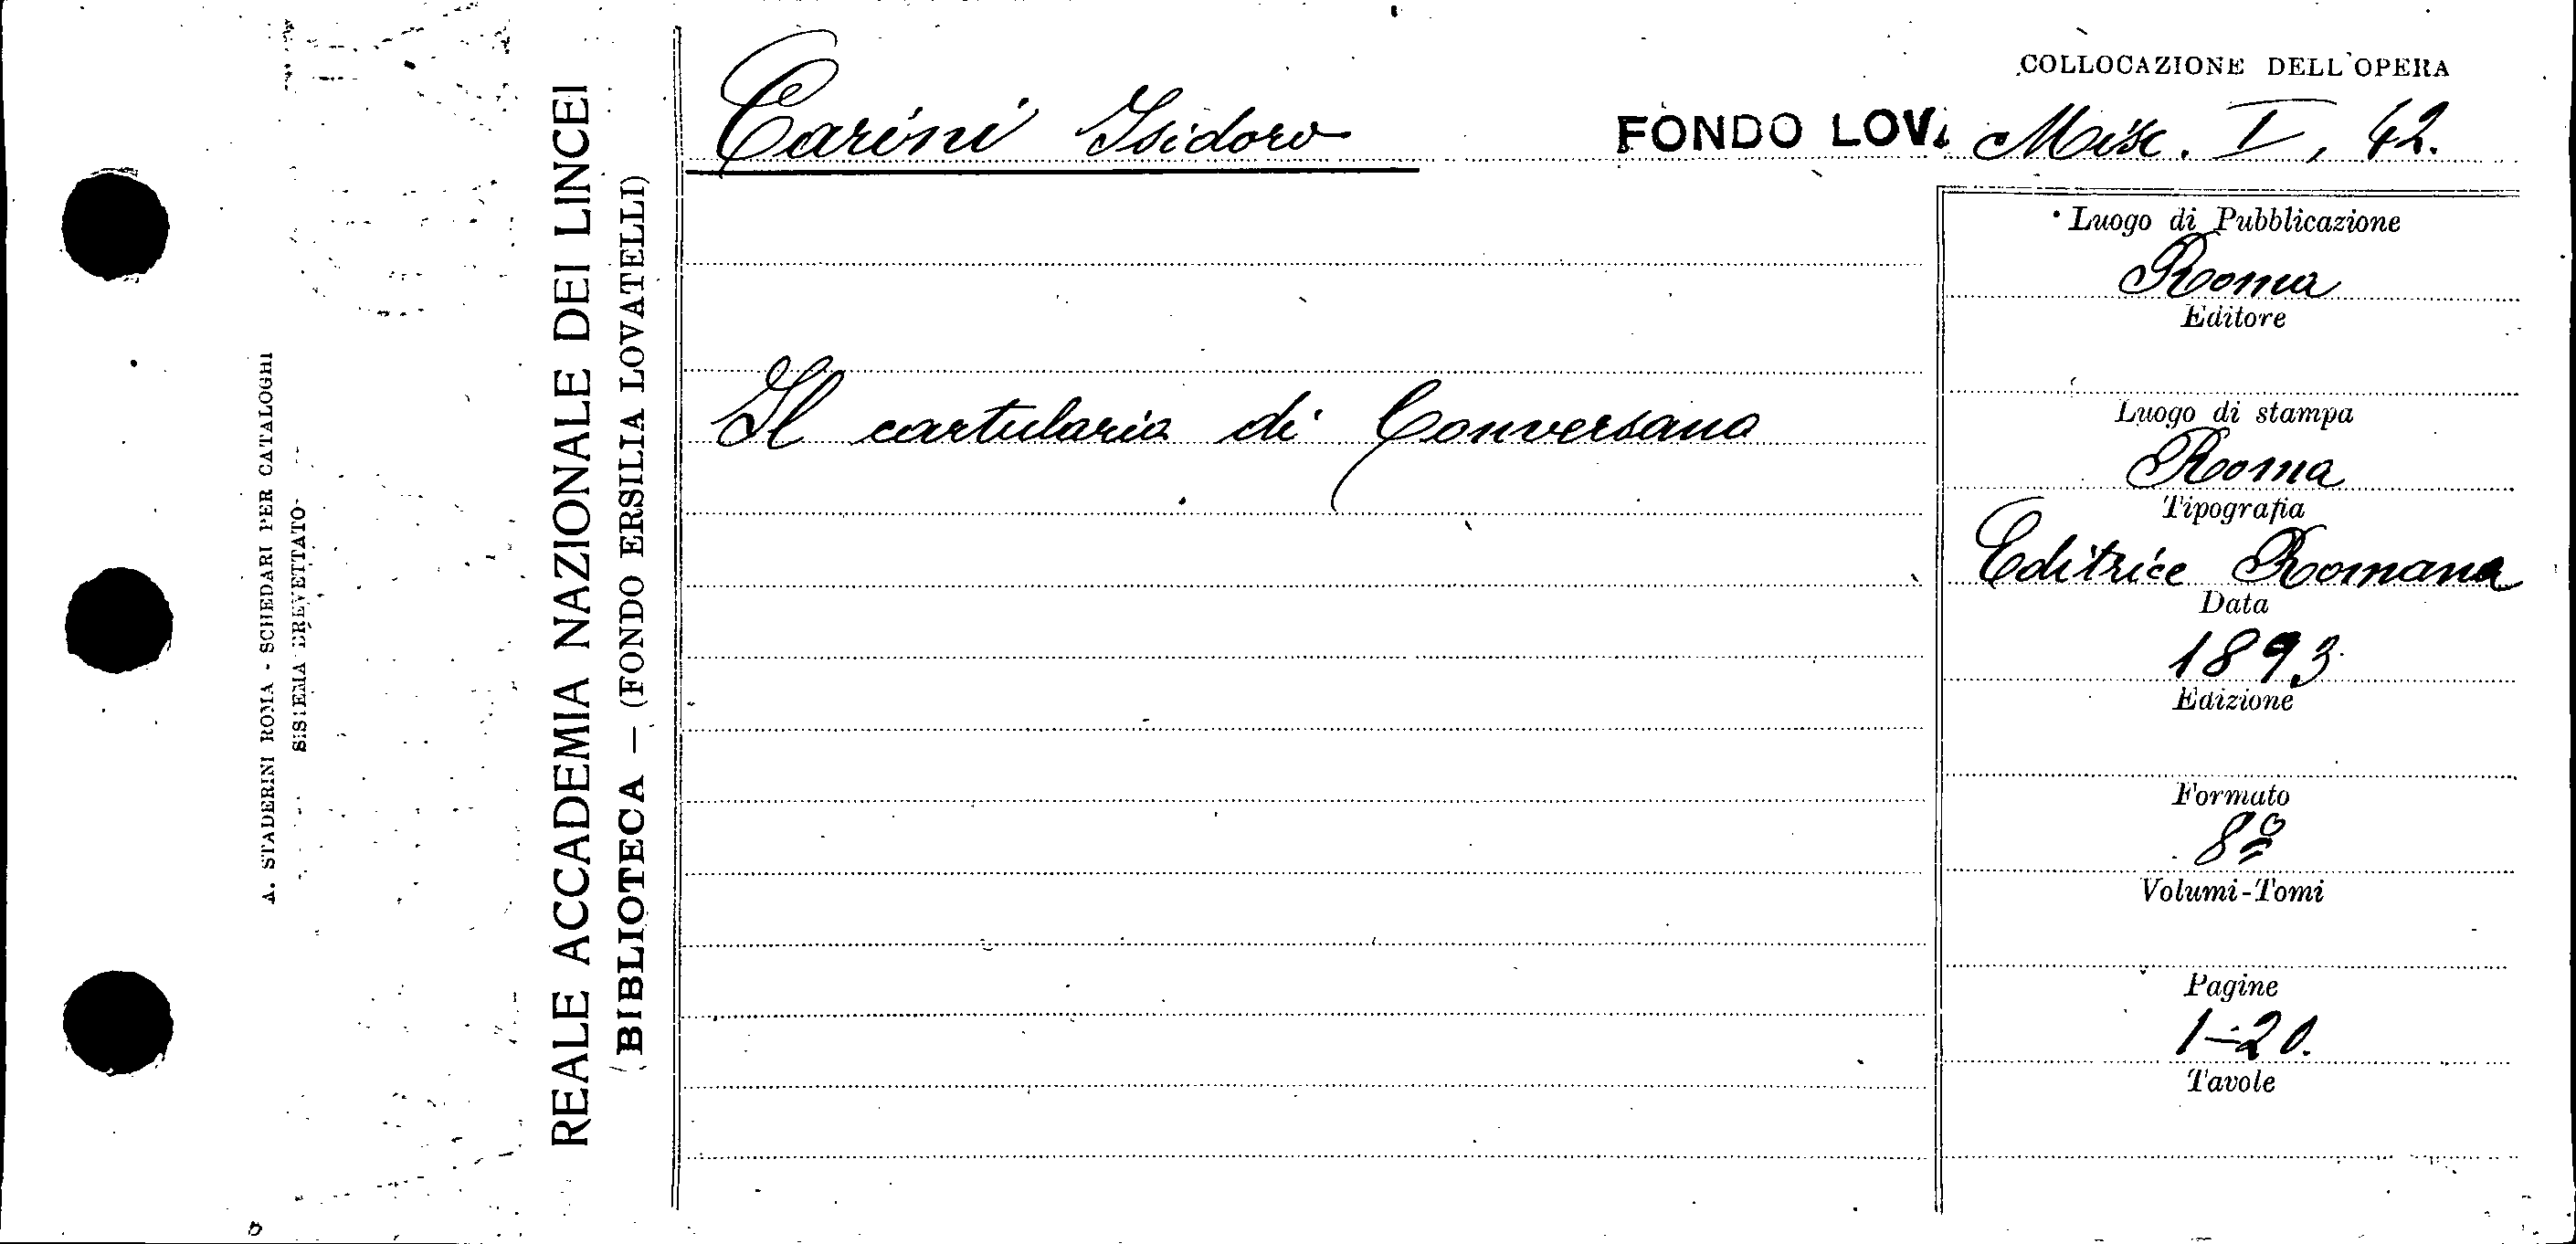 A. STADERINI ROMA - SCHEDARI PER CATALOGHI
SISTEMA BREVETTATO
REALE ACCADEMIA NAZIONALE DEI LINCEI
(BIBLIOTECA — (FONDO ERSILIA LOVATELLI)
COLLOCAZIONE DELL'OPERA
Carini Isidoro
FONDO LOV. Misc. I, 42.
Il cartulario di Conversano
Luogo di Pubblicazione
Roma
Editore
Luogo di stampa
Roma
Tipografia
Editrice Romana
Data
1893
Edizione
Formato
8º
Volumi-Tomi
Pagine
1-20.
Tavole